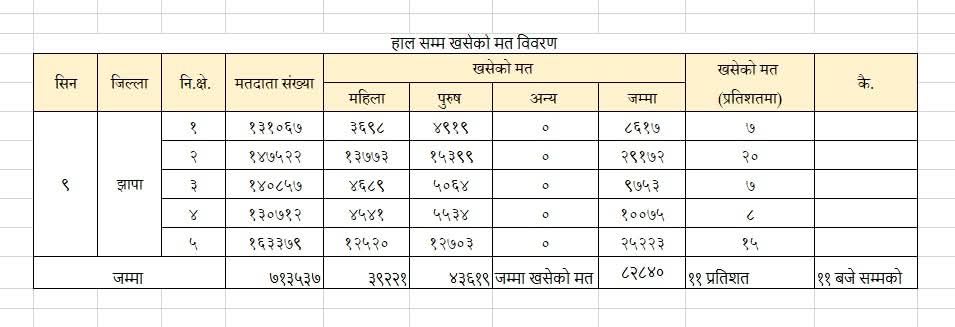 हाल सम्म खसेको मत विवरण
सिन जिल्ला नि.क्षे. मतदाता संख्या खसेको मत खसेको मत (प्रतिशतमा) कै.
महिला पुरुष अन्य जम्मा
९ झापा
१ १३१०६७ ३६९८ ४९१९ ० ८६१७ ७
२ १४७५२२ १३७७३ १५३९९ ० २९१७२ २०
३ १४०८५७ ४६८९ ५०६४ ० ९७५३ ७
४ १३०७१२ ४५४१ ५५३४ ० १००७५ ८
५ १६३३७९ १२५२० १२७०३ ० २५२२३ १५
जम्मा ७१३५३७ ३९२२१ ४३६१९ जम्मा खसेको मत ८२८४० ११ प्रतिशत ११ बजे सम्मको